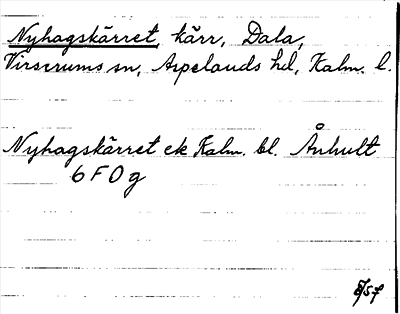 Nyhagskärret, kärr, Dala,
Virserums sn, Aspelands hd, Kalm. l.
Nyhagskärret ek Kalm. bl. Ånhult
6 F 0 g